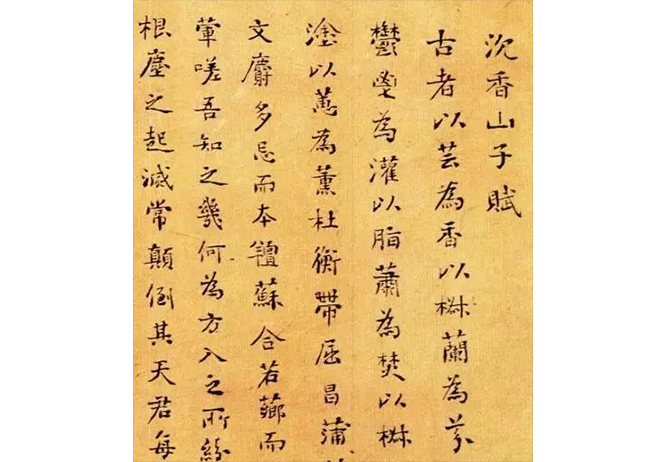 沉香山子賦
古者以芸為香以椒蘭為芬
鬱鬯為灌以脂蕭為焚以椒
塗以蕙為薰杜衡帶屈昌蒲
文麝多忌而本羶蘇合若薌而
葷嗟吾知之幾何為方入之所紛
根塵之起滅常顛倒其天君每